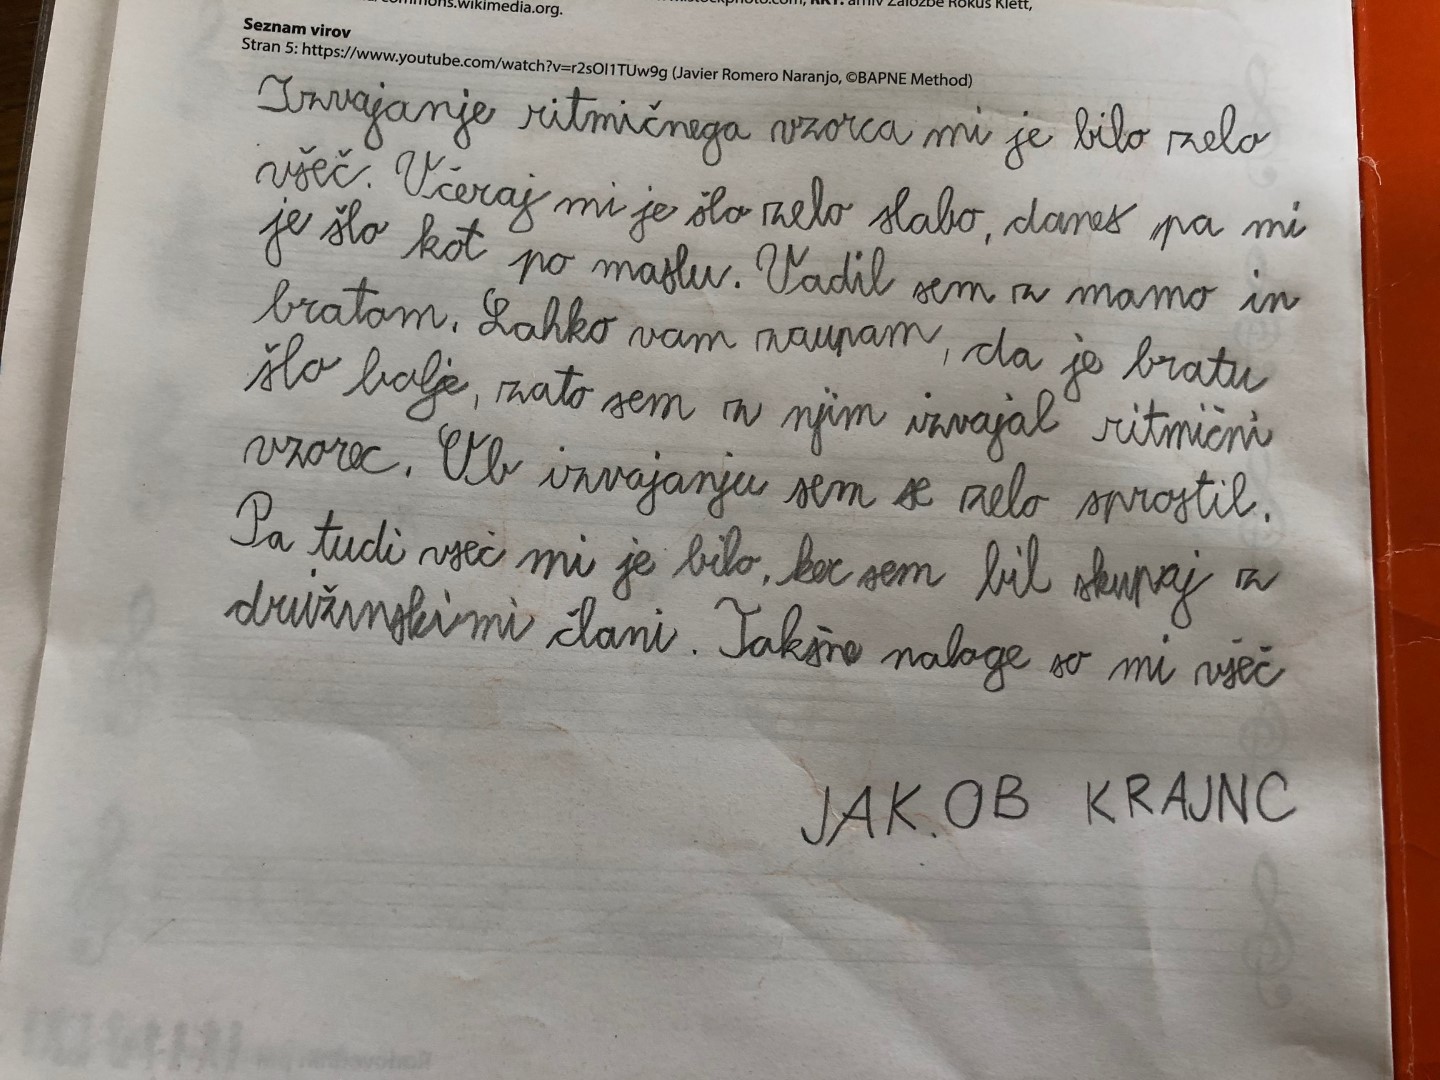 commons.wikimedia.org.
stockphoto.com, RKT: arhiv Založbe Rokus Klett,
Seznam virov
Stran 5: https://www.youtube.com/watch?v=r2sOI1TUw9g (Javier Romero Naranjo, ©BAPNE Method)
Izvajanje ritmičnega vzorca mi je bilo zelo
všeč. Včeraj mi je šlo zelo slabo, danes pa mi
je šlo kot po maslu. Vadil sem z mamo in
bratom. Lahko vam zaupam, da je bratu
šlo bolje, zato sem z njim izvajal ritmični
vzorec. Ob izvajanju sem se zelo sprostil.
Pa tudi všeč mi je bilo, ker sem bil skupaj z
družinskimi člani. Takšne naloge so mi všeč
JAKOB KRAJNC